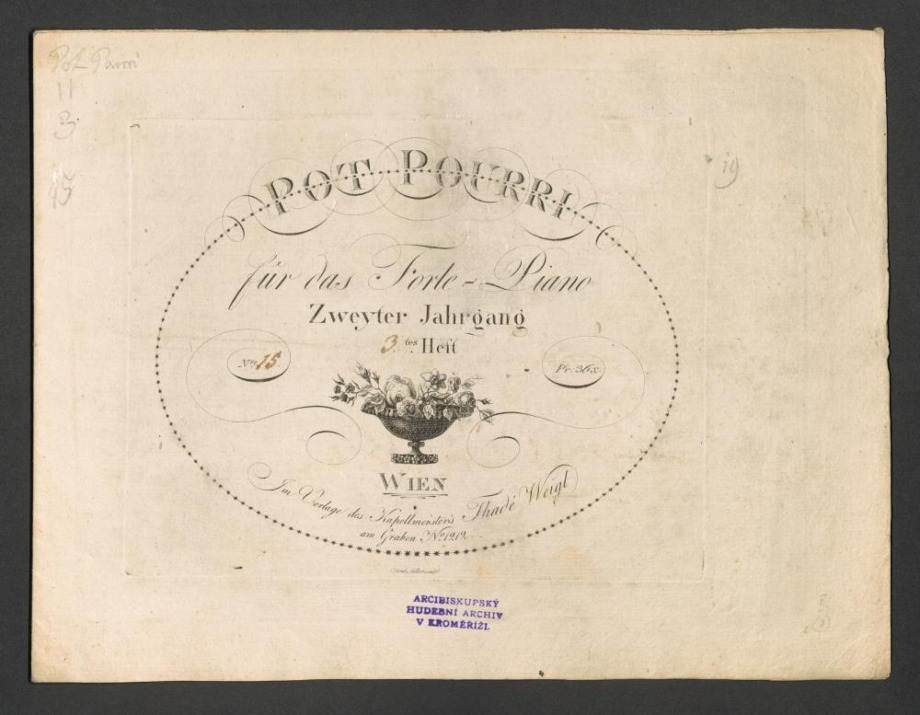 Pot Pourri
11
3
15
19
POT POURRI
für das Forte-Piano
Zweyter Jahrgang
3.tes Heft
No. 15.
Pr: 36x.
WIEN
Im Verlage des Kapellmeisters Thadé Weigl
am Graben No. 1212.
ARCIBISKUPSKÝ
HUDEBNÍ ARCHIV
V KROMĚŘÍŽI.